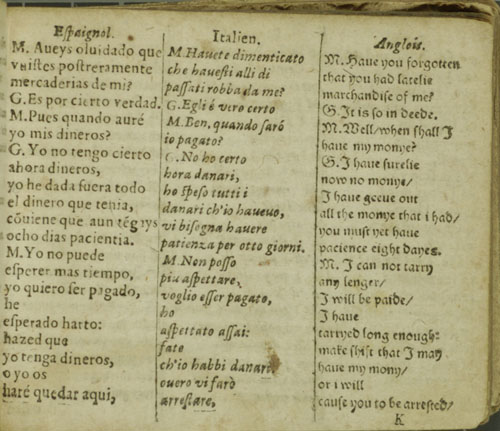 Espaignol.
M. Aueys oluidado que
vnistes postreramente
mercaderias de mi?
G. Es por cierto verdad.
M. Pues quando auré
yo mis dineros?
G. Yo no tengo cierto
ahora dineros,
yo he dada fuera todo
el dinero que tenia,
cōuiene que aun tēgays
ocho dias pacientia.
M. Yo no puede
esperer mas tiempo,
yo quiero ser pagado,
he
esperado harto:
hazed que
yo tenga dineros,
o yo os
haré quedar aqui,
Italien.
M. Hauete dimenticato
che hauesti alli di
passati robba da me?
G. Egli è vero certo
M. Ben, quando sarò
io pagato?
G. No ho certo
hora danari,
ho speso tutti i
danari ch'io haueuo,
vi bisogna hauere
patienza per otto giorni.
M. Non posso
piu aspettare,
voglio esser pagato,
ho
aspettato assai:
fate
ch'io habbi danari
ouero vi farò
arrestare,
Anglois.
M. Haue you forgotten
that you had latelie
marchandise of me?
G. It is so in deede.
M. Well/ when shall I
haue my monye?
G. I haue surelie
now no monye/
I haue geeue out
all the monye that i had/
you must yet haue
pacience eight dayes.
M. I can not tarry
any lenger/
I will be paide/
I haue
tarryed long enough:
make shift that I may
haue my mony/
or i will
cause you to be arrested/
K